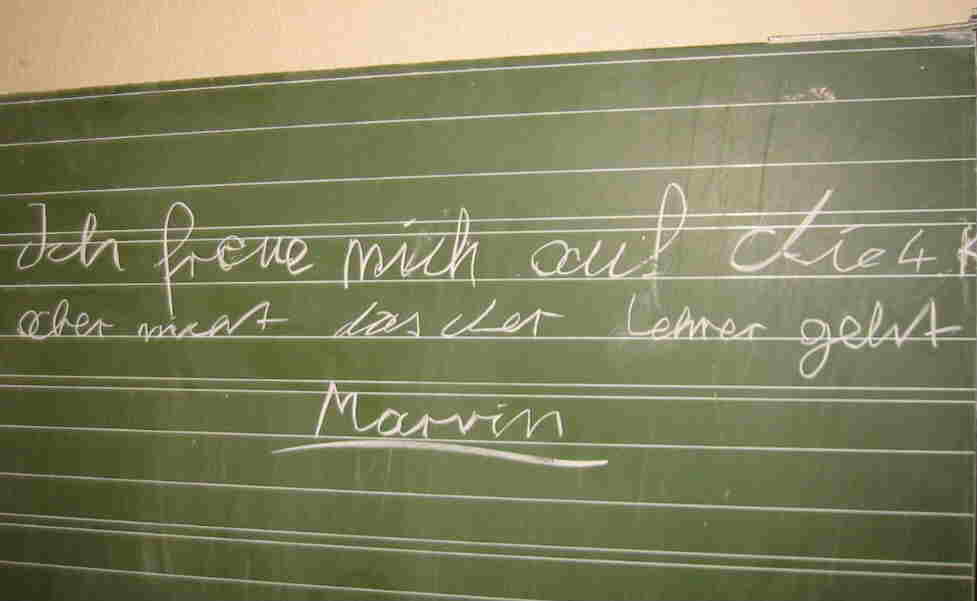 Ich freue mich auf die 4. K
aber nicht das der Lehrer geht
Marvin